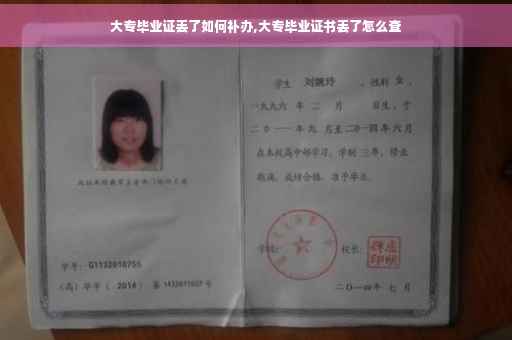 大专毕业证丢了如何补办,大专毕业证书丢了怎么查
学生 刘婉玲 ,性别 女 ,
一九九六 年 二 月 日生,于
二〇一一年九 月至二〇一四年六月
在本校高中部学习,学制 三年,修业
期满,成绩合格,准予毕业。
学号: G1132010755
(高)毕字( 2014 )第 1432011027 号
学校:
校长:
二〇一四年 七 月